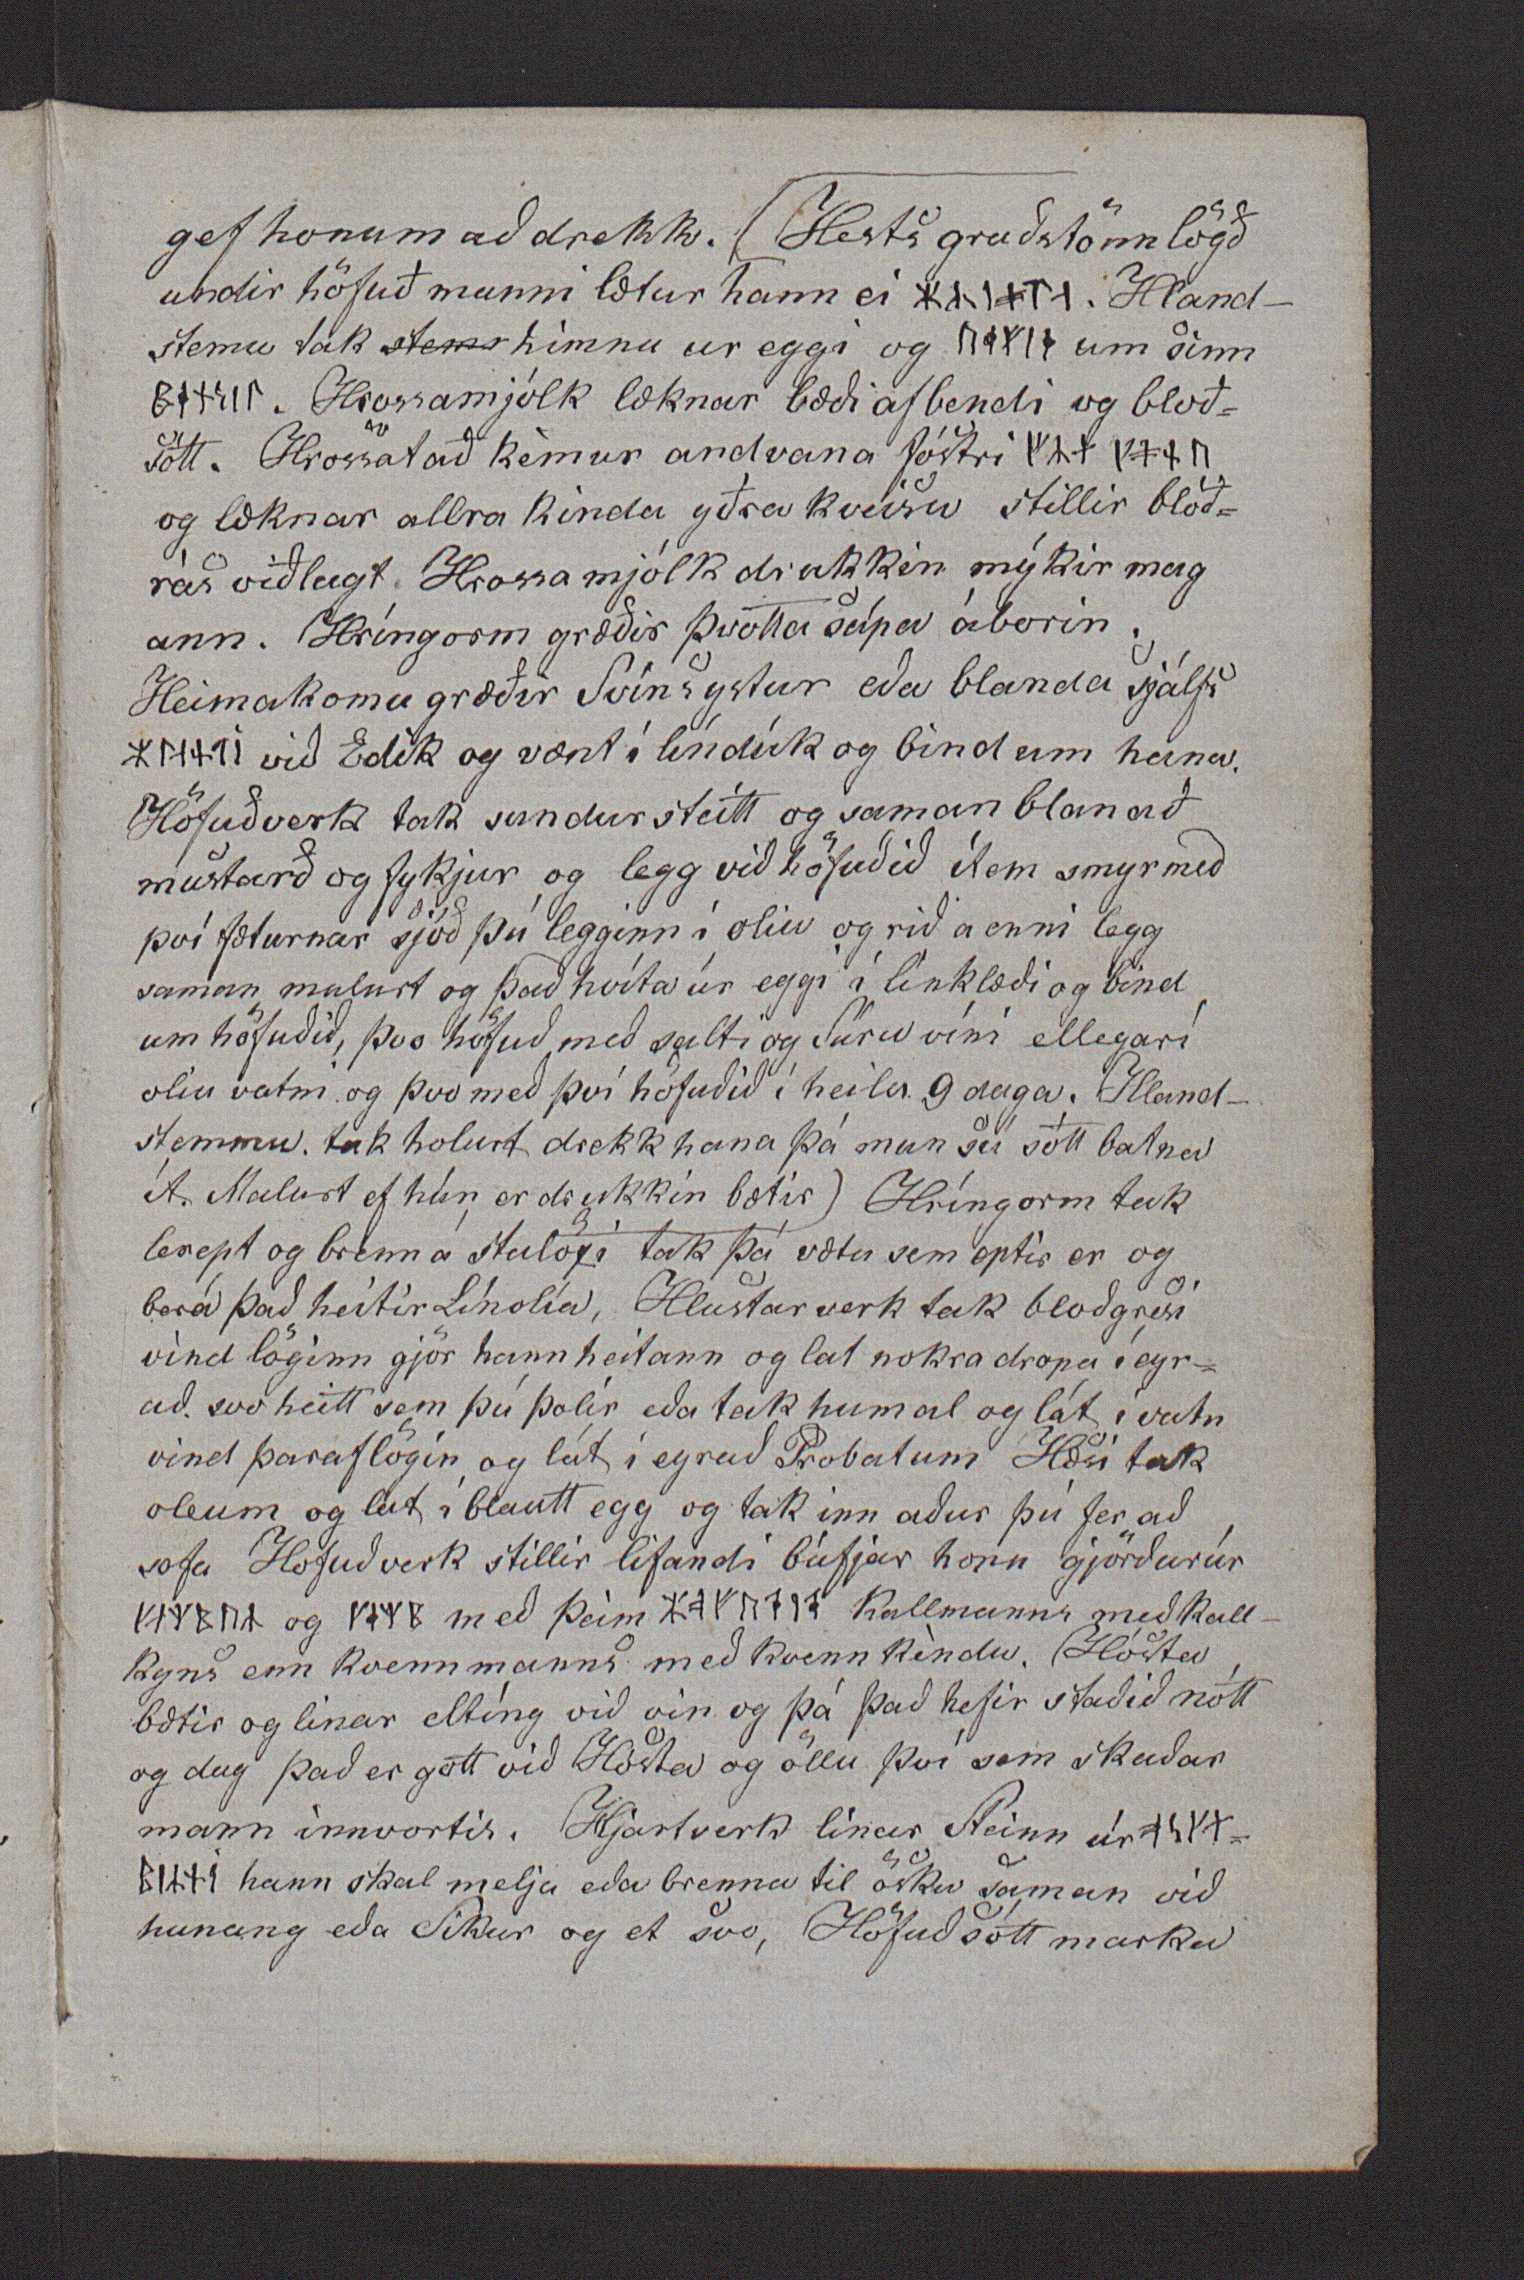 gef honum að drekk. (Hests graðstönn lögð
undir höfuð manni lætur hann ei ᚼᚱᛁᚮᛏᛆ. Hland-
stemu tak stems himnu ur eggi og um sinn
. Hrossamjólk læknar bæði afbendi og bloð=
sótt. Hrossatað kèmur andvana fóstri
og læknar allra kinda yðra kveisu stillir blóð=
rás viðlagt. Hrossamjólk drukkin mýkir mag
ann. Hríngorm græðir þvotta sápa áborin.
Heimakomu græðir Svíns ystur eða blanda sjálfs
ᚼᛚᛆᚾᛏᛁ við Edik og vænt í líndúk og bind um hana.
Höfuðverk tak sundur steitt og saman blanað
mustarð og fykjur og legg við höfuðið ítem smyr með
því fæturnar sjóð þú legginn í oliu og rið a enni legg
saman malurt og það hvíta úr eggi í línklæði og bind
um höfuðið, þvo höfuð með salti og Súru víni ellegar í
oliu vatni og þvo með því höfuðið í heila 9 daga. Hland-
stemmu. tak holurt drekk hana þá mun sú sótt batna
ít. Malurt ef hún er drukkin bætir) Hríngorm tak
lerept og brenn á staloxi tak þá vætu sem eptir er og
ber á það heitir Línolía, Hlustarverk tak bloðgresi
vind löginn gjör hann heitann og lat nokra dropa í eyr=
að. svo heitt sem þú þolir eða tak humal og lát í vatn
vind þaraf lögin og lát í eyrað Probatum Hæsi tak
oleum og lat í blautt egg og tak inn aður þú fer að
sofa Hofuðverk stillir lifandi búfjár honu gjörður úr
og með þeim Kallmanns með kall-
kyns enn kvennmanns með kvennkèndu. (Hósta
bætir og linar elting við vin og þá það hefir staðið nótt
og dag það er gott við Hósta og öllu því sem skaðar
mann innvortis. Hjartverk linar Steinn úr
hann skal melja eða brenna til ösku saman við
hunang eða Sikur og et svo, Höfuðsótt marka